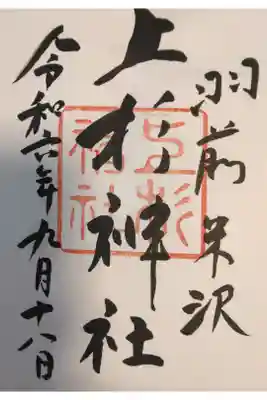 羽前米沢
上杉神社
上杉神社
令和六年九月十八日